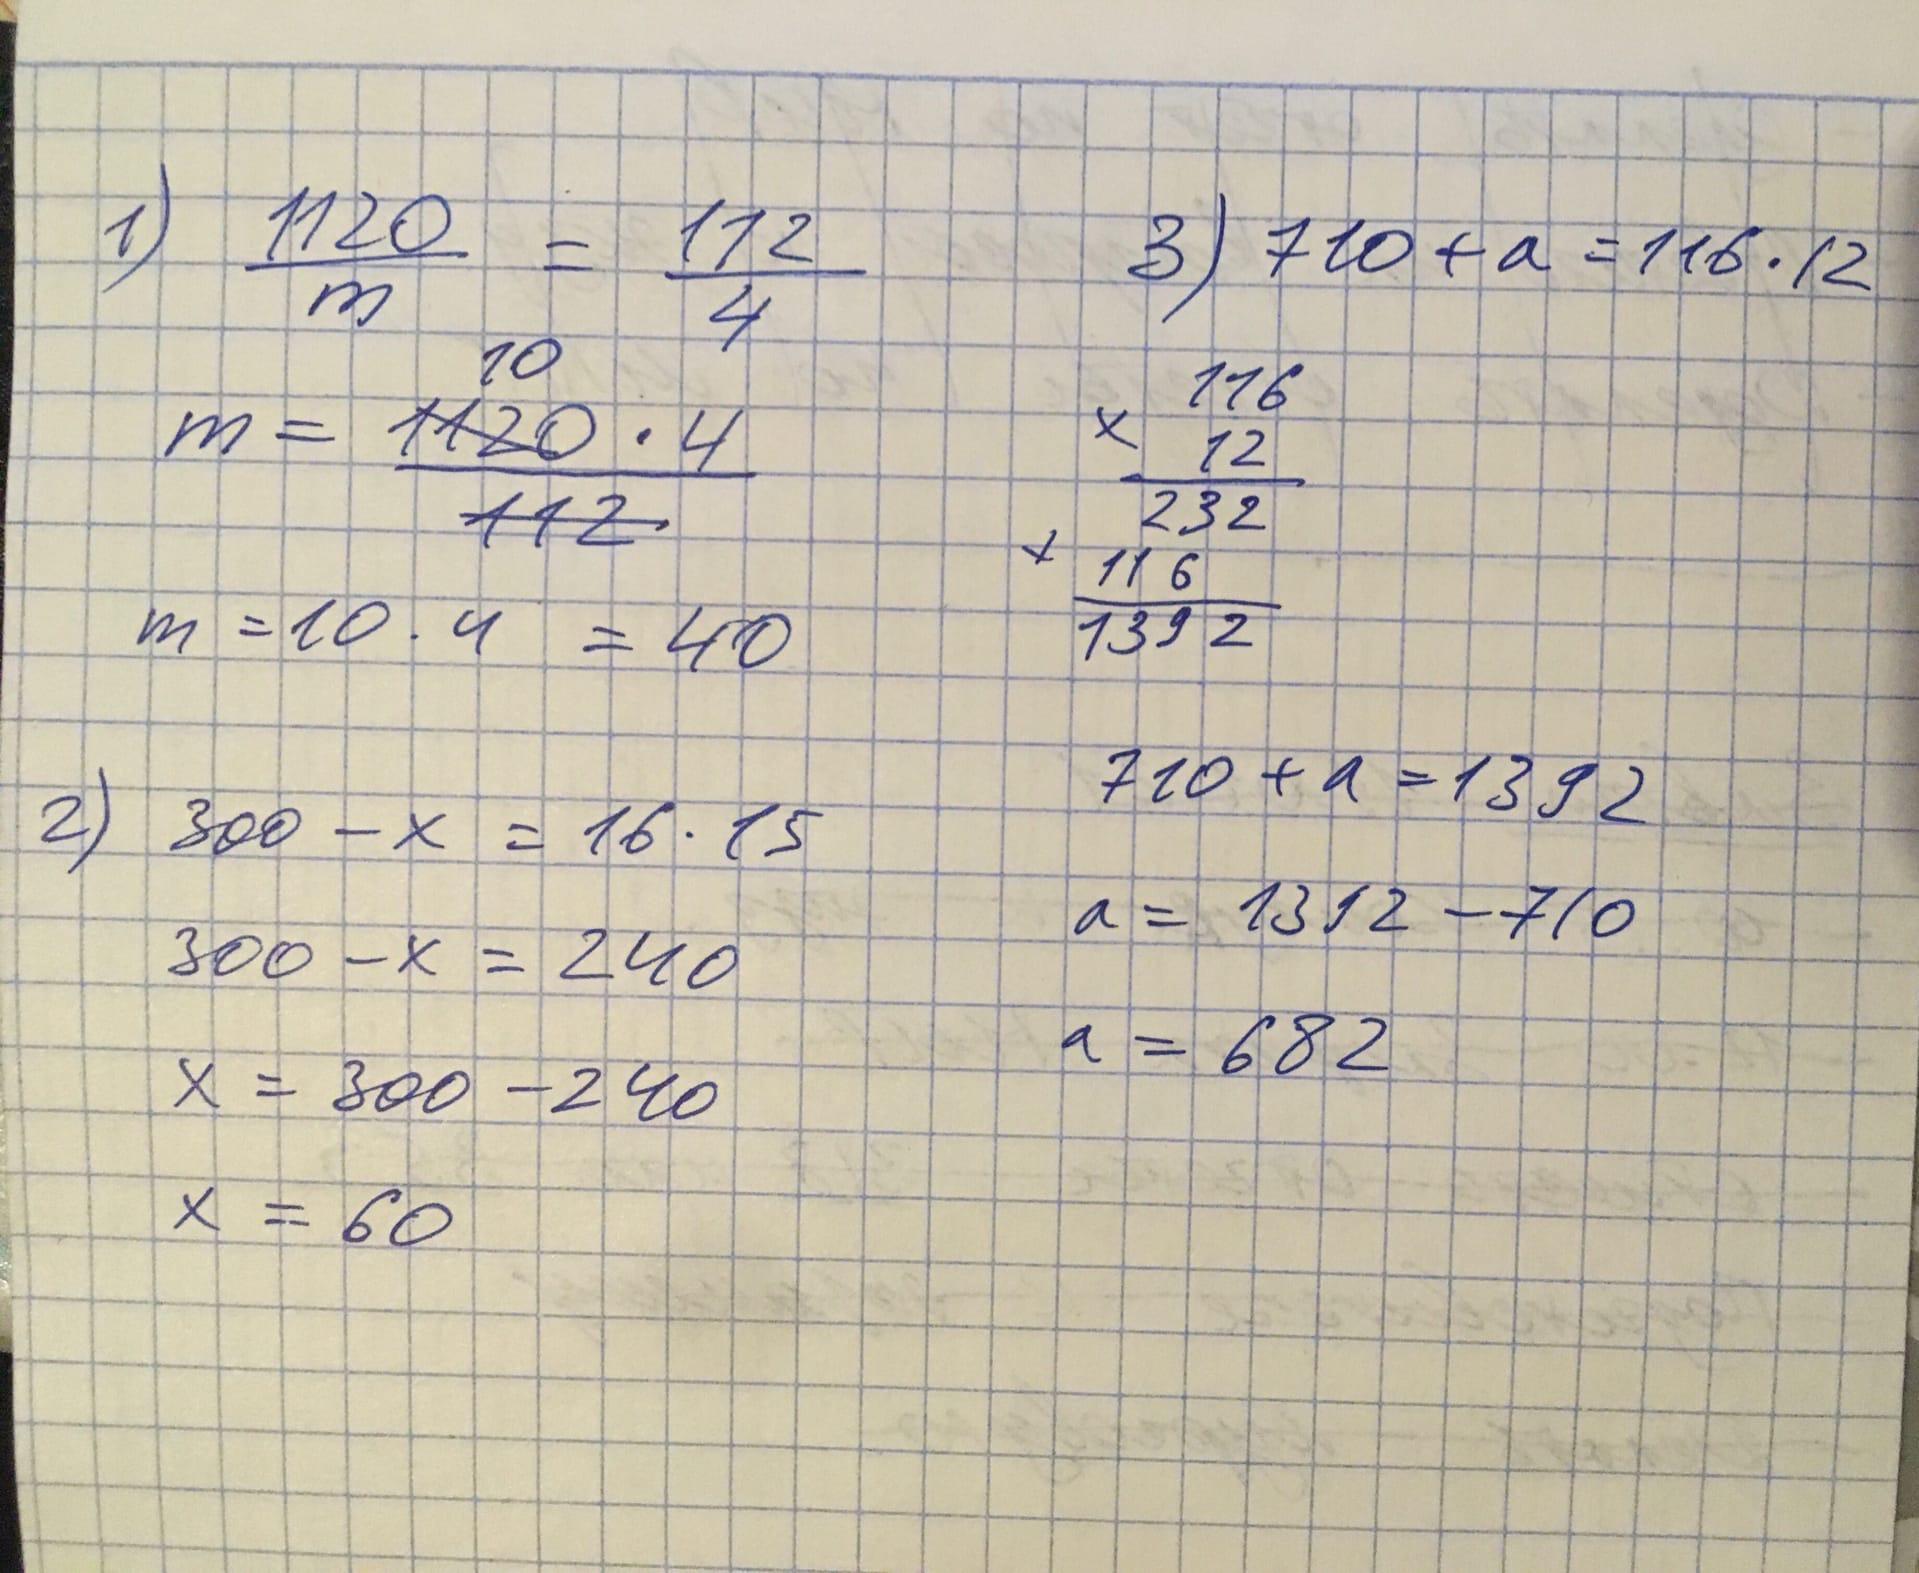 1) 1120/m = 112/4
10
m = 1120 · 4 / 112
m = 10 · 4 = 40
2) 300 - x = 16 · 15
300 - x = 240
x = 300 - 240
x = 60
3) 710 + a = 116 · 12
116
× 12
232
+ 116
1392
710 + a = 1392
a = 1392 - 710
a = 682